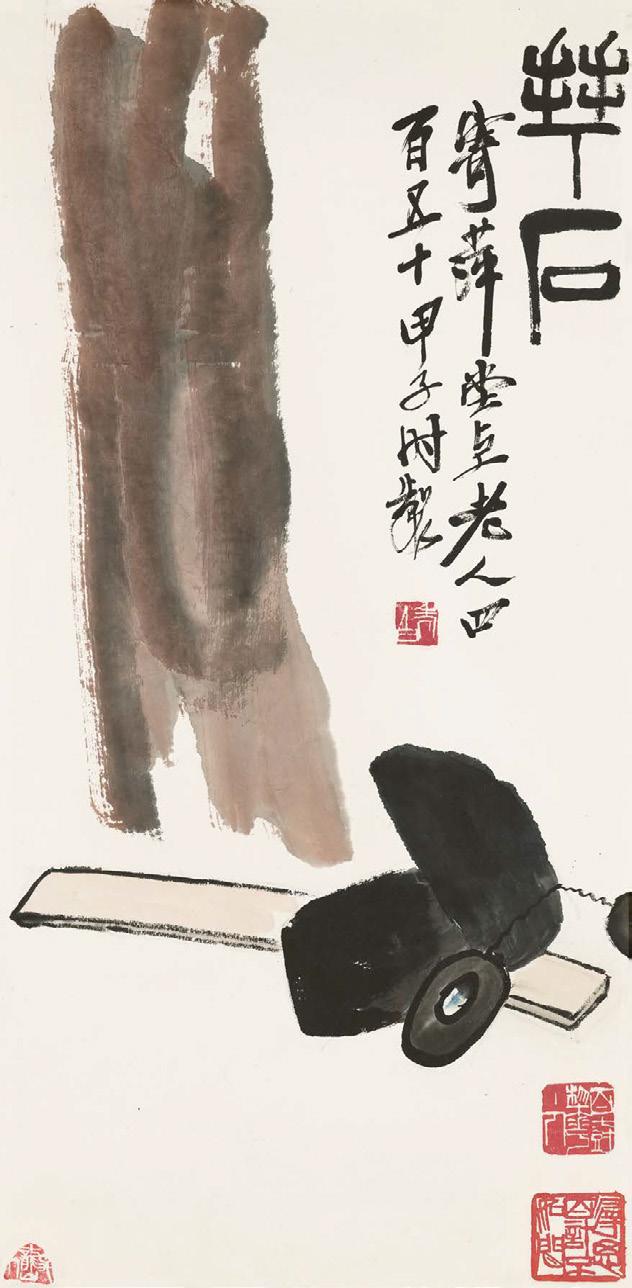 拜石
寄萍堂上老人四
百五十甲子时製